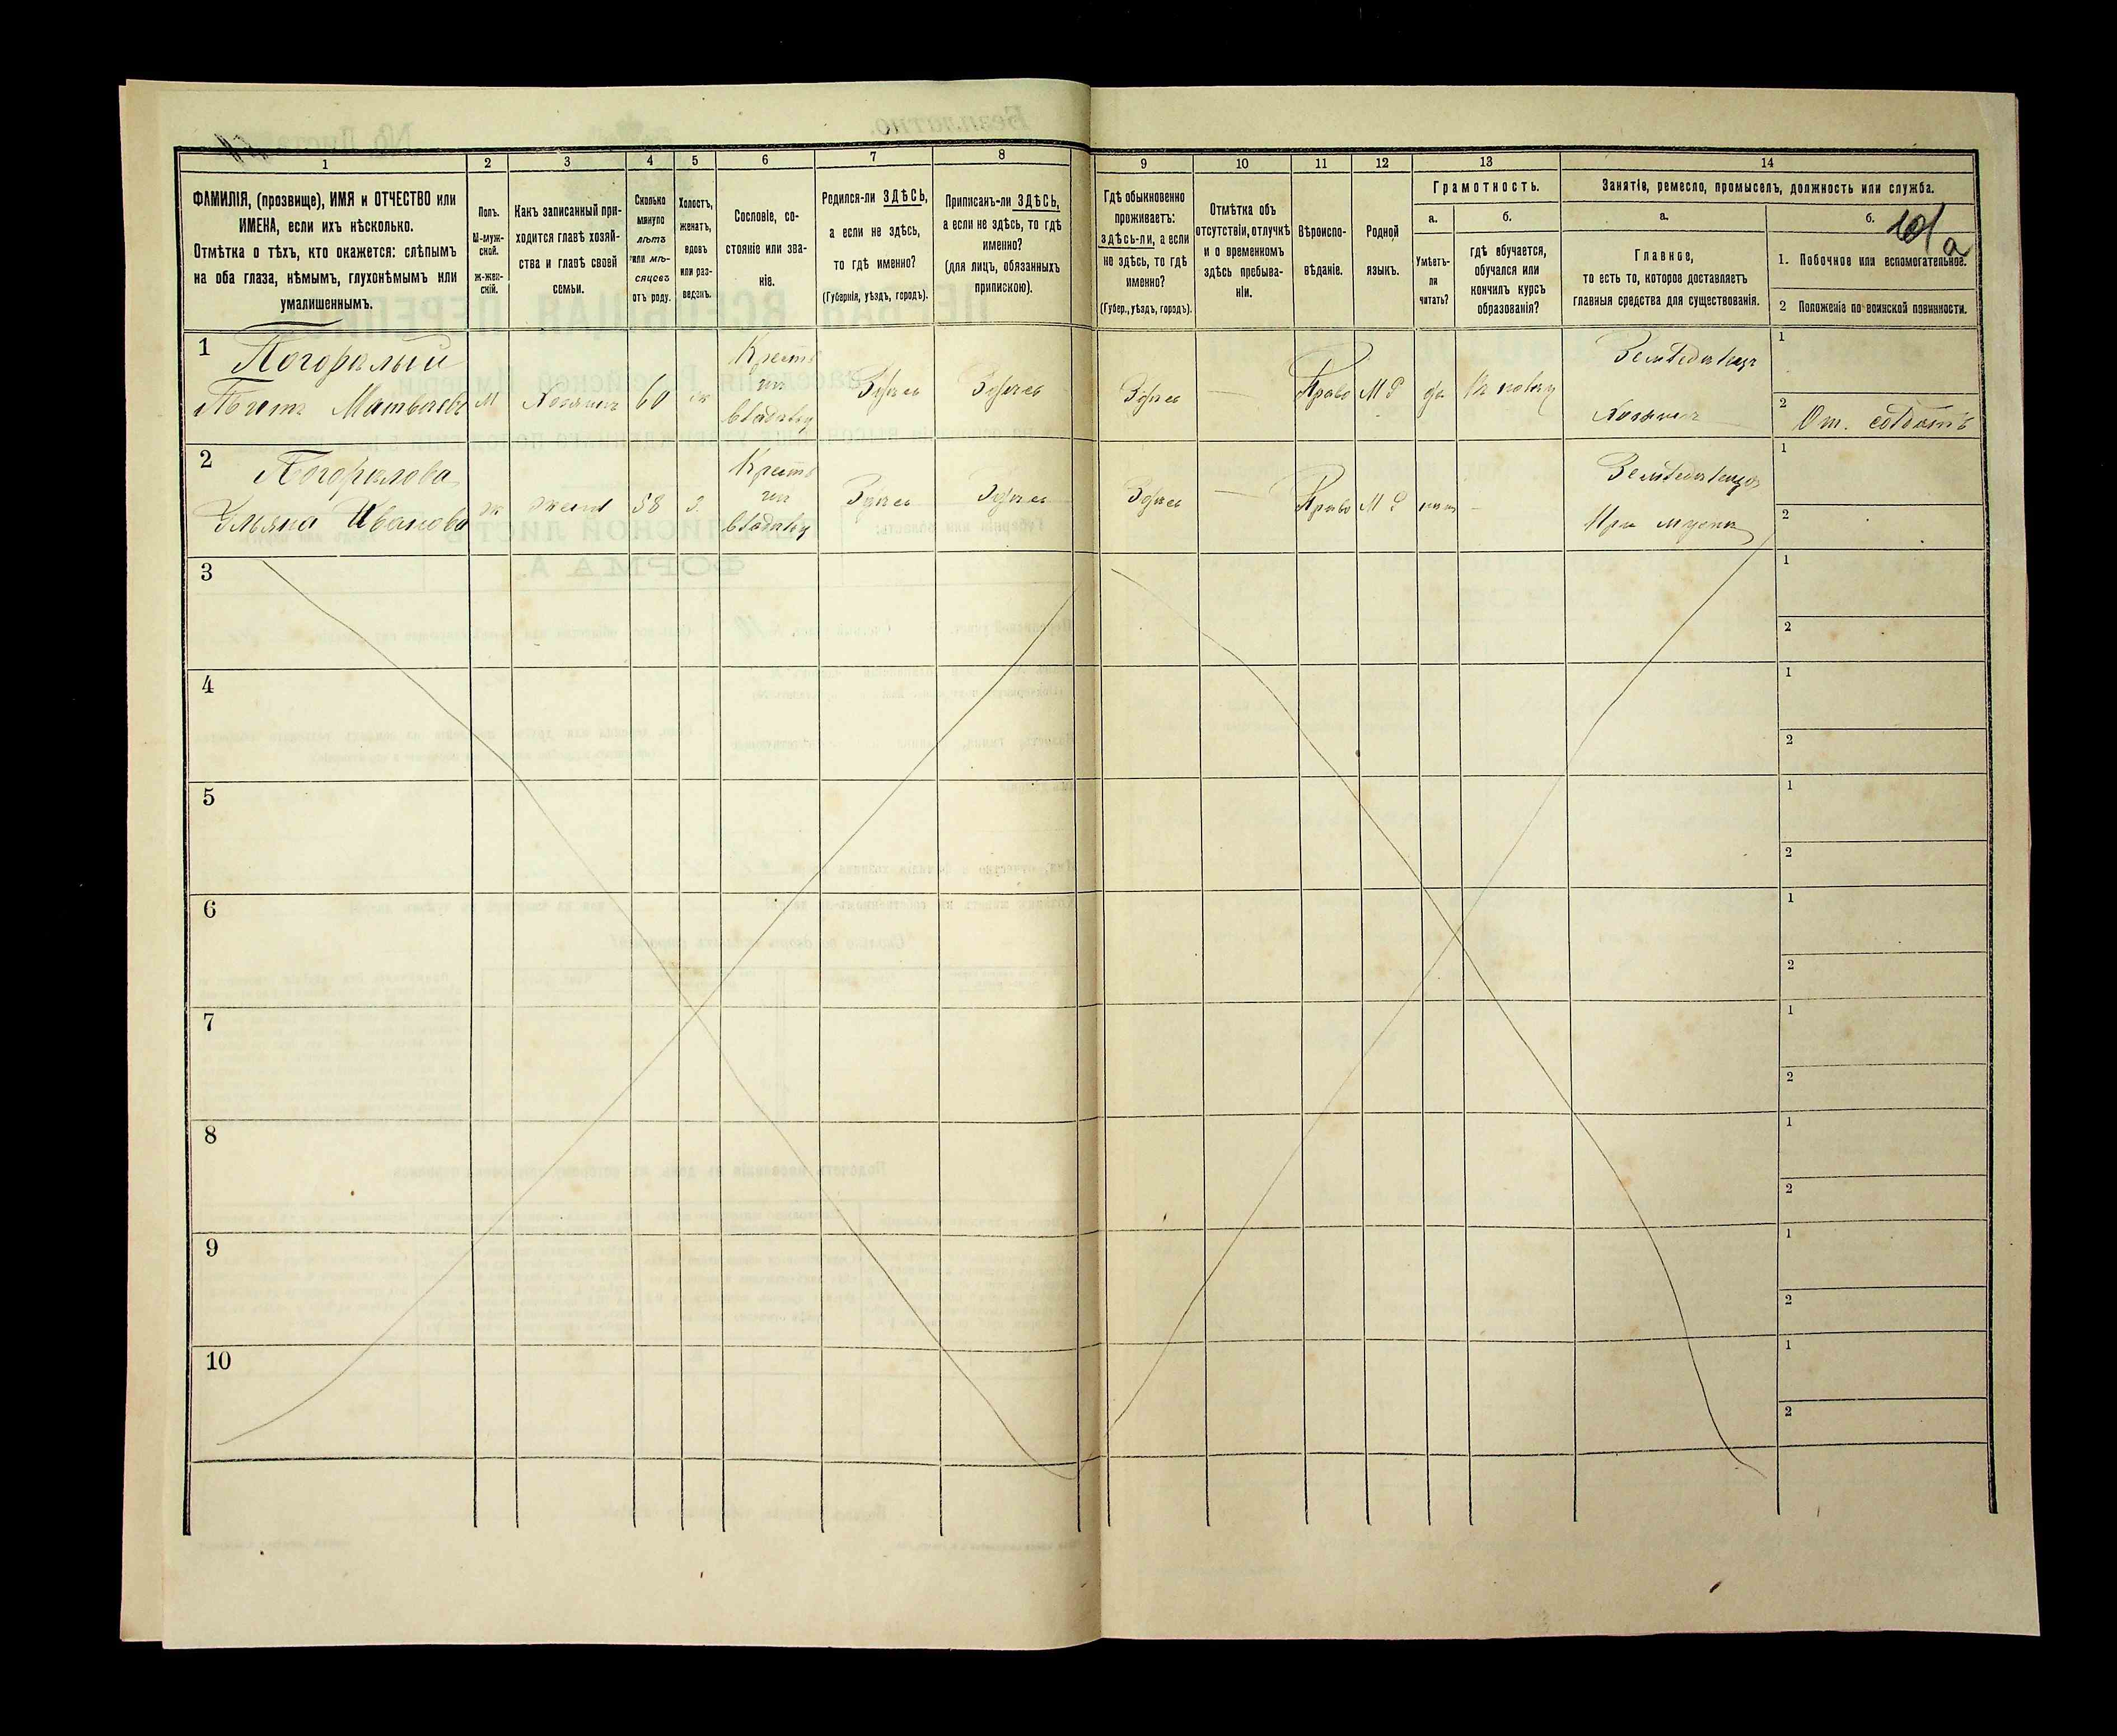 1
2
3
4
5
6
7
8
9
10
11
12
13
14
ФАМИЛІЯ, (прозвище), ИМЯ и ОТЧЕСТВО или
ИМЕНА, если ихъ нѣсколько.
Отмѣтка о тѣхъ, кто окажется: слѣпымъ
на оба глаза, нѣмымъ, глухонѣмымъ или
умалишеннымъ.
Полъ.
М-муж-
ской.
ж-жен-
скій.
Какъ записанный при-
ходится главѣ хозяй-
ства и главѣ своей
семьи.
Сколько
минуло
лѣтъ
или мѣ-
сяцевъ
отъ роду.
Холостъ,
женатъ,
вдовъ
или раз-
веденъ.
Сословіе, со-
стояніе или зва-
ніе.
Родился-ли ЗДѢСЬ,
а если не здѣсь,
то гдѣ именно?
(Губернія, уѣздъ, городъ).
Приписанъ-ли ЗДѢСЬ,
а если не здѣсь, то гдѣ
именно?
(для лицъ, обязанныхъ
припискою).
Гдѣ обыкновенно
проживаетъ:
здѣсь-ли, а если
не здѣсь, то гдѣ
именно?
(Губер., уѣздъ, городъ).
Отмѣтка объ
отсутствіи, отлучкѣ
и о временномъ
здѣсь пребыва-
ніи.
Вѣроиспо-
вѣданіе.
Родной
языкъ.
Грамотность.
а.
Умѣетъ-
ли
читать?
б.
гдѣ обучается,
обучался или
кончилъ курсъ
образованія?
Занятіе, ремесло, промыселъ, должность или служба.
а.
Главное,
то есть то, которое доставляетъ
главныя средства для существованія.
б.
101а
1. Побочное или вспомогательное.
2 Положеніе по воинской повинности.
1
Погорѣлый
Матвѣевъ
М
Хозяинъ
60
ж
Крестья
Здѣсь
Здѣсь
Здѣсь
—
Право
М Р
да
Земледѣлецъ
Хозяинъ
1
2 От. солдатъ
2
Погорѣлова
Ульяна Иванова
ж
жена
58
з.
Крестья
Здѣсь
Здѣсь
Здѣсь
—
Право
М Р
нѣтъ
—
При мужѣ
1
2
3
1
2
4
1
2
5
1
2
6
1
2
7
1
2
8
1
2
9
1
2
10
1
2